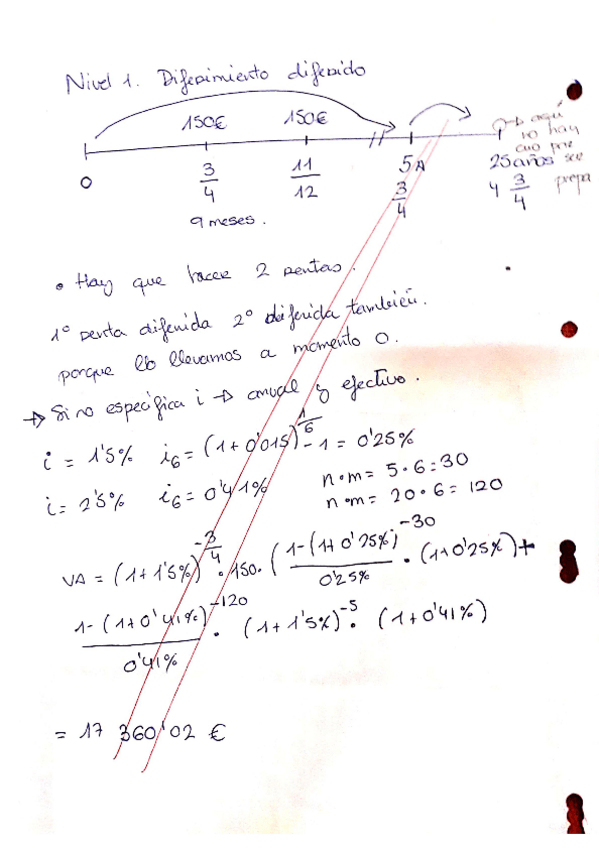 Nivel 1. Diferimiento diferido
150€ 150€
0 3/4 11/12 5A 3/4 25 años 4 3/4
→ aquí
no hay
que
prepa
9 meses.
• Hay que hacer 2 rentas.
1º renta diferida 2º diferida también.
porque lo llevamos a momento 0.
→ Si no especifica i → anual y efectivo.
i = 1'5% i6 = (1+0'015)^1/6 - 1 = 0'25%
i = 2'5% i6 = 0'41%
n·m = 5·6 = 30
n·m = 20·6 = 120
VA = (1+1'5%)^-3/4 · 150 · ( 1-(1+0'25%)^-30 / 0'25% · (1+0'25%) +
1-(1+0'41%)^-120 / 0'41% · (1+1'5%)^-5 · (1+0'41%)
= 17 360'02 €